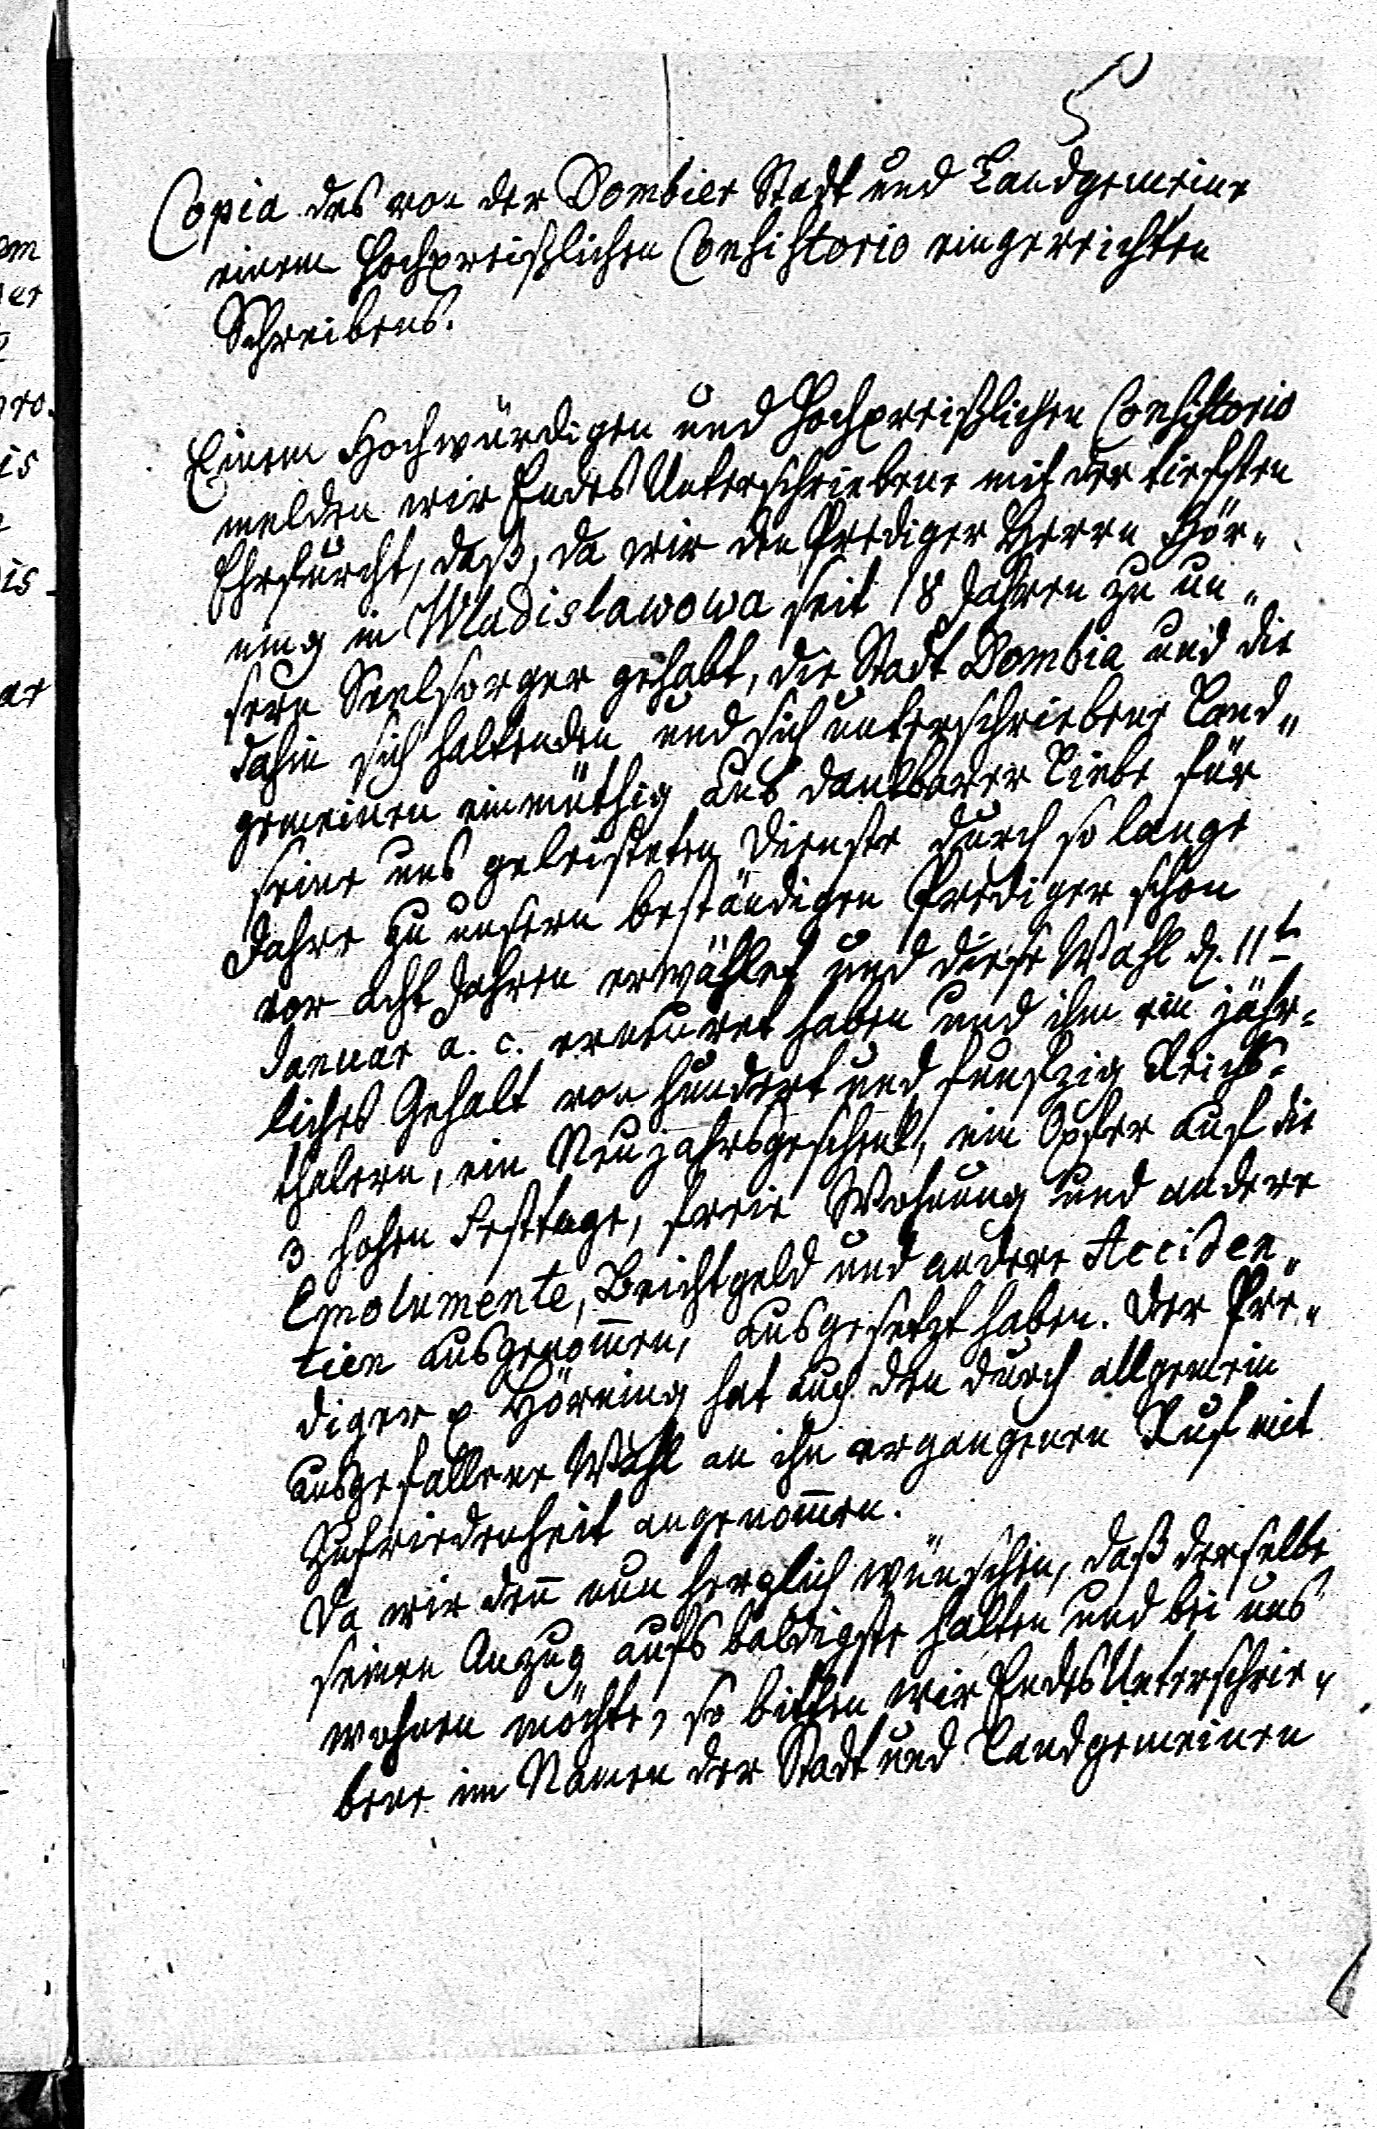 5
Copia des von der Dombier Stadt und Landgemeine
einem Hochpreißlichen Consistorio eingereichten
Schreibens.
Einem Hochwürdigen und Hochpreißlichen Consistorio
melden wir Endes Unterschriebene mit der tiefsten
Ehrfurcht, daß, da wir den Prediger Herrn Hör„
ning in Wladislawowa seit 18 Jahren zu un„
serm Seelsorger gehabt, die Stadt Dombia und die
dahin sich haltenden und sich unterschriebene Land„
gemeinen einmüthig aus dankbarer Liebe für
seine uns geleisteten Dienste durch so lange
Jahre zu unserm beständigen Prediger schon
vor acht Jahren erwählet und diese Wahl d. 11t
Januar a. c. erneuret haben und ihm ein jähr=
liches Gehalt von hundert und funfzig Reichs=
thalern, ein Neujahrsgeschenk, ein Opfer auf die
3 hohen Festtage, freie Wohnung und andere
Emolumente, Beichtgeld und andere Acciden„
tien ausgenom̄en, ausgesetzt haben. Der Pre„
diger p. Hörning hat auch den durch allgemein
ausgefallene Wahl an ihn ergangenen Ruf mit
Zufriedenheit angenom̄en.
Da wir den̄ nun herzlich wünschen, daß derselbe
seinen Anzug aufs baldigste halten und bei uns
wohnen möchte, so bitten wir Endes Unterschrie„
bene im Namen der Stadt und Landgemeinen